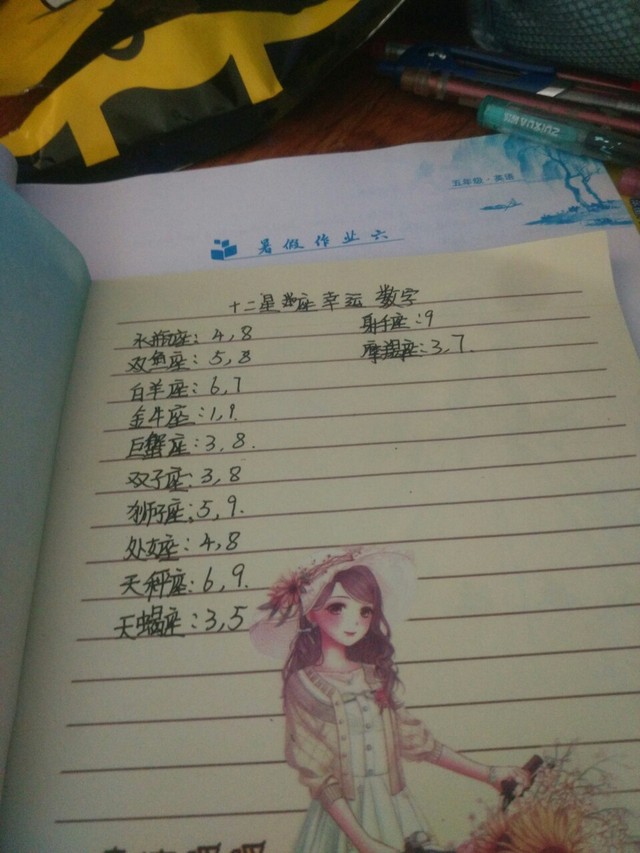 五年级·英语
暑假作业六
十二星座幸运数字
水瓶座:4,8
双鱼座:5,8
白羊座:6,7
金牛座:1,9.
巨蟹座:3,8.
双子座:3,8
狮子座:5,9.
处女座:4,8
天秤座:6,9.
天蝎座:3,5
射手座:9
摩羯座:3,7.